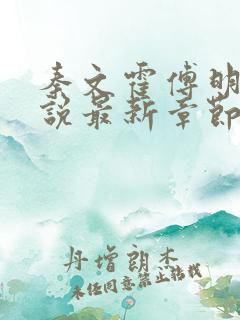 秦文霍傅明
说最新章节
丹增朗杰
未经同意禁止转载